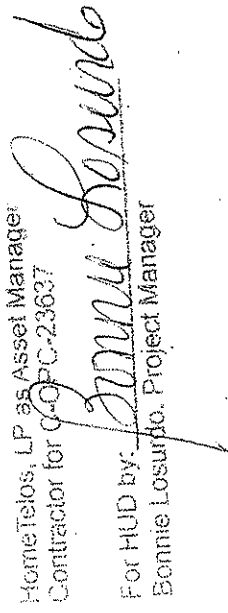 HomeTelos, LP as Asset Manager
Contractor for C-OPC-23637
For HUD by: Bonnie Losurdo
Bonnie Losurdo, Project Manager